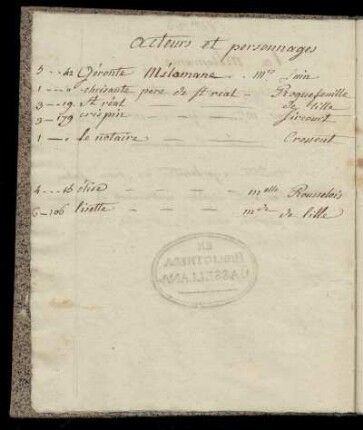 acteurs et personnages
5 -- 42 Géronte Mélomane - Mrs Juin
1 -- " chrisante père de st réal - Roquefeuille
3 -- 19. St réal - - - de lille
3 - 179 crispin - - - Sircourt
1 - " le notaire - - - Cressent
4 -- 15 élise - - - melle Rousselois
6 - 106 lisette - - - mde de lille
EX
BIBLIOTHECA
CASSELLANA